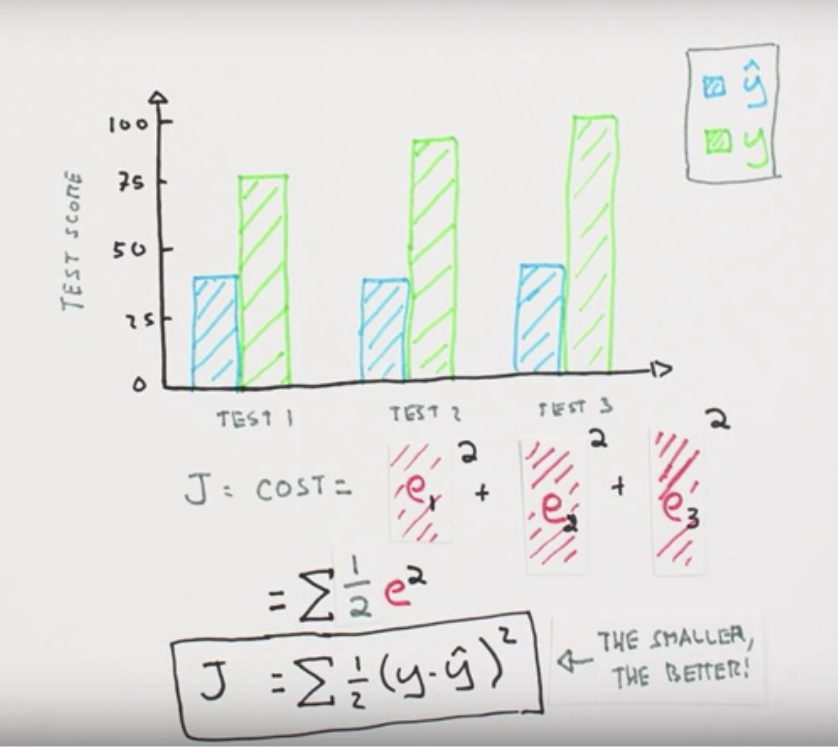 ŷ
y
TEST SCORE
100
75
50
25
0
TEST 1
TEST 2
TEST 3
J = COST = e₁² + e₂² + e₃²
= ∑ 1/2 e²
J = ∑ 1/2 (y - ŷ)²
← THE SMALLER,
THE BETTER!